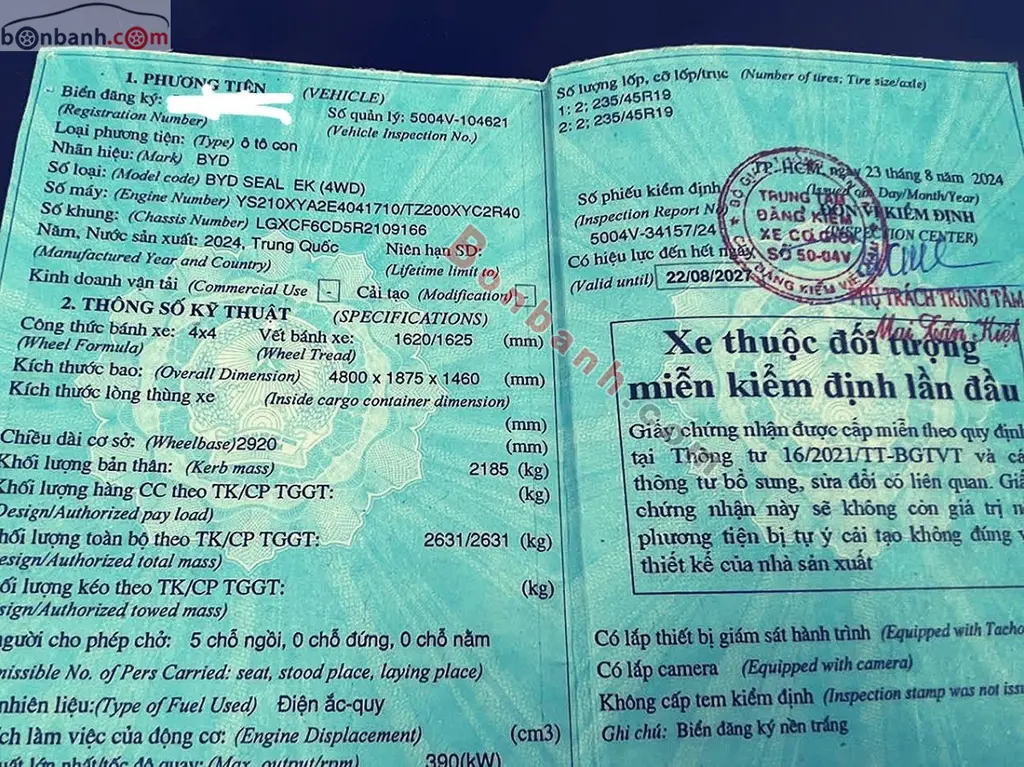 bonbanh.com
1. PHƯƠNG TIỆN (VEHICLE)
Biển đăng ký:
(Registration Number)
Số quản lý: 5004V-104621
(Vehicle Inspection No.)
Loại phương tiện: (Type) ô tô con
Nhãn hiệu: (Mark) BYD
Số loại: (Model code) BYD SEAL EK (4WD)
Số máy: (Engine Number) YS210XYA2E4041710/TZ200XYC2R40
Số khung: (Chassis Number) LGXCF6CD5R2109166
Năm, Nước sản xuất: 2024, Trung Quốc Niên hạn SD:
(Manufactured Year and Country) (Lifetime limit to)
Kinh doanh vận tải (Commercial Use - Cải tạo (Modification
2. THÔNG SỐ KỸ THUẬT (SPECIFICATIONS)
Công thức bánh xe: 4x4 Vết bánh xe: 1620/1625 (mm)
(Wheel Formula) (Wheel Tread)
Kích thước bao: (Overall Dimension) 4800 x 1875 x 1460 (mm)
Kích thước lòng thùng xe (Inside cargo container dimension)
(mm)
Chiều dài cơ sở: (Wheelbase)2920 (mm)
Khối lượng bản thân: (Kerb mass) 2185 (kg)
Khối lượng hàng CC theo TK/CP TGGT: (kg)
Design/Authorized pay load)
hối lượng toàn bộ theo TK/CP TGGT: 2631/2631 (kg)
esign/Authorized total mass)
ối lượng kéo theo TK/CP TGGT: (kg)
sign/Authorized towed mass)
người cho phép chở: 5 chỗ ngồi, 0 chỗ đứng, 0 chỗ nằm
missible No. of Pers Carried: seat, stood place, laying place)
nhiên liệu:(Type of Fuel Used) Điện ắc-quy
ích làm việc của động cơ: (Engine Displacement) (cm3)
uất lớn nhất/tốc độ quay: (Max. output/rpm) 390(kW)
Số lượng lốp, cỡ lốp/trục (Number of tires; Tire size/axle)
1: 2; 235/45R19
2: 2; 235/45R19
TP. HCM, ngày 23 tháng 8 năm 2024
(Issued on Day/Month/Year)
Số phiếu kiểm định
(Inspection Report N
5004V-34157/24
ĐƠN VỊ KIỂM ĐỊNH
(INSPECTION CENTER)
Có hiệu lực đến hết ngày
(Valid until) 22/08/2027
TRUNG TÂM
ĐĂNG KIỂM
XE CƠ GIỚI
SỐ 50-04V
PHỤ TRÁCH TRUNG TÂM
Mai Tuấn Kiệt
Xe thuộc đối tượng
miễn kiểm định lần đầu
Giấy chứng nhận được cấp miễn theo quy định
tại Thông tư 16/2021/TT-BGTVT và cá
thông tư bổ sung, sửa đổi có liên quan. Giấ
chứng nhận này sẽ không còn giá trị n
phương tiện bị tự ý cải tạo không đúng v
thiết kế của nhà sản xuất
Có lắp thiết bị giám sát hành trình (Equipped with Tacho
Có lắp camera (Equipped with camera)
Không cấp tem kiểm định (Inspection stamp was not issu
Ghi chú: Biển đăng ký nền trắng
Bonbanh.com